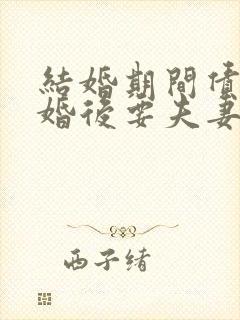 結婚期間債
婚後要夫妻
西子緒